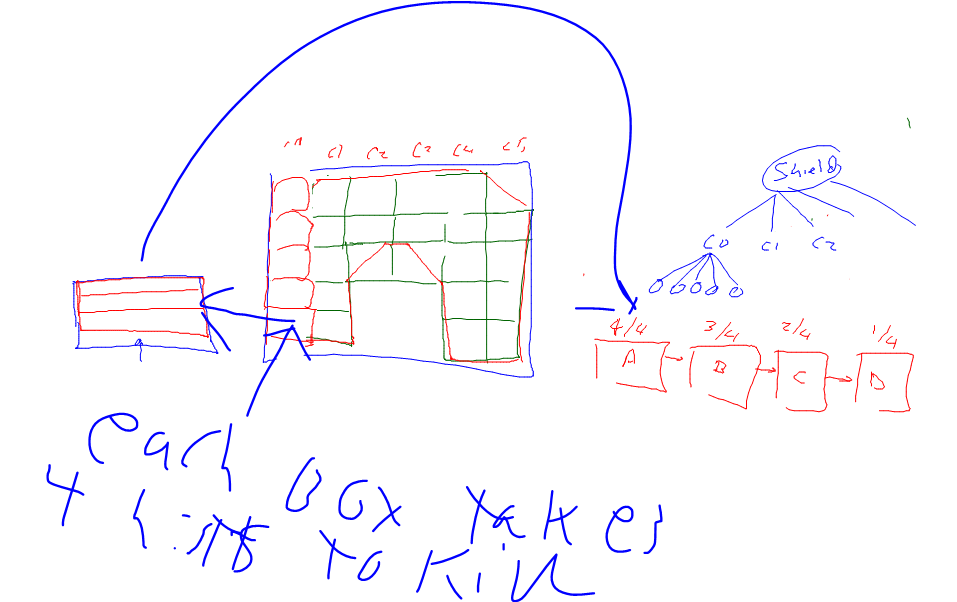 C1 C2 C3 C4 C5
Shield
C0 C1 C2
4/4 3/4 2/4 1/4
A B C D
each box takes
4 hits to kill